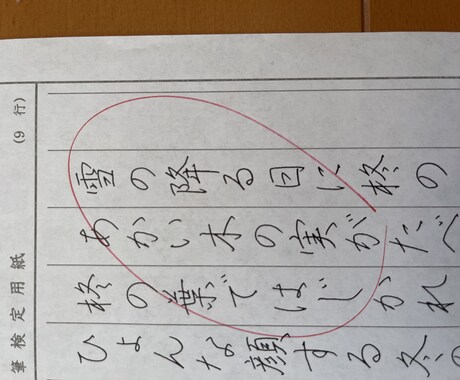 筆検定用紙 (9 行)
雪の降る日に柊の
あかい木の実がたべ
柊の葉ではじかれ
ひょんな顔する冬の